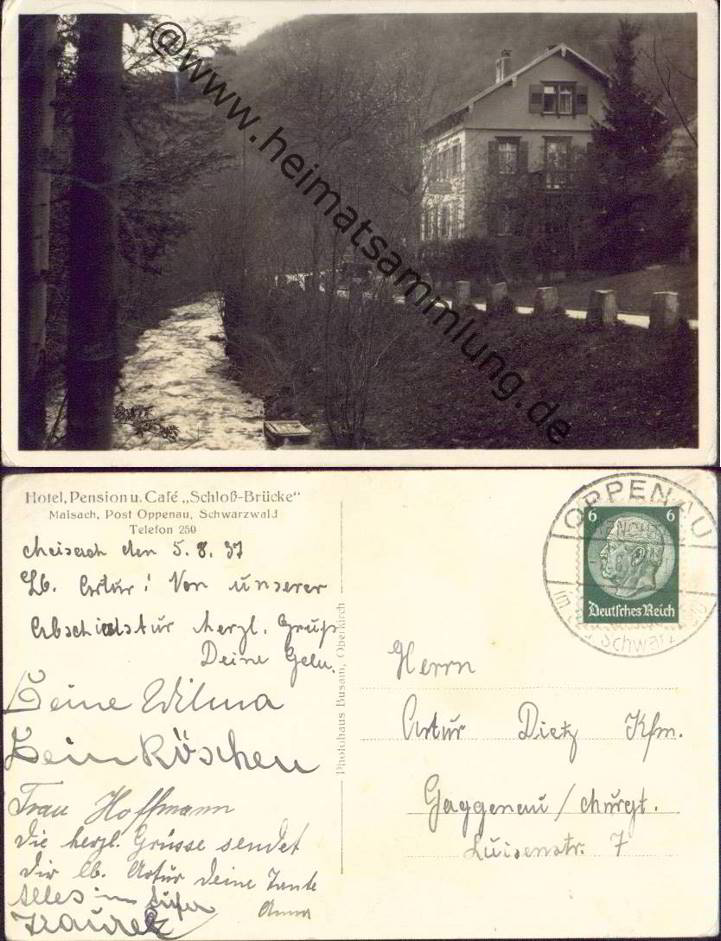 @www.heimatsammlung.de
Hotel, Pension u. Café „Schloß-Brücke"
Maisach, Post Oppenau, Schwarzwald
Telefon 250
Maisach den 5.8.37
Lb. Artur! Von unserer
Abschiedstur herzl. Gruß
Deine Geln.
Deine Wilma
Dein Röschen
Frau Hoffmann
Die herzl. Grüsse sendet
Dir lb. Artur Deine Tante
Anna
Alles im
Photohaus Busam, Oberkirch
OPPENAU
im bad. Schwarzwald
6 6
Deutsches Reich
Herrn
Artur Dietz Kfm.
Gaggenau / Murgt.
Luisenstr. 7